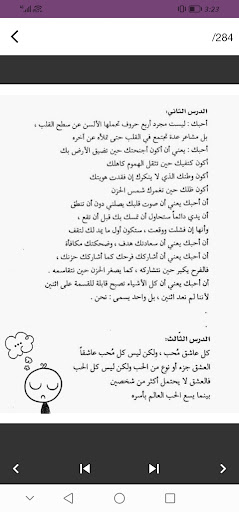 3:27
/284
الدرس الثاني:
أحبك : ليست مجرد أربع حروف تحملها الألسن عن سطح القلب ،
بل مشاعر عدة تجتمع في القلب حتى تملأه عن آخره
أحبك : يعني أن أكون أجنحتك حين تضيق الأرض بك
أكون كتفيك حين تثقل الهموم كاهلك
أكون وطنك الذي لا ينكرك إن فقدت هويتك
أكون ظلك حين تغمرك شمس الحزن
أن أحبك يعني أن صوت قلبك يصلني دون أن تنطق
أن يدي دائماً ستحاول أن تمسك بك قبل أن تقع ،
وأنها إن فشلت ووقعت ، ستكون أول ما يمد لك لتقف
أن أحبك يعني أن سعادتك هدف ، وضحكتك مكافأة
أن أحبك يعني أن أشاركك فرحك كما أشاركك حزنك ،
فالفرح يكبر حين نتشاركه ، كما يصغر الحزن حين نتقاسمه .
أن أحبك يعني أن كل الأشياء تصبح قابلة للقسمة على اثنين
لأننا لم نعد اثنين ، بل واحد يسمى : نحن .
.
.
الدرس الثالث:
كل عاشق مُحب ، ولكن ليس كل محب عاشقاً
العشق جزء أو نوع من الحب ولكن ليس كل الحب
فالعشق لا يحتمل أكثر من شخصين
بينما يسع الحب العالم بأسره